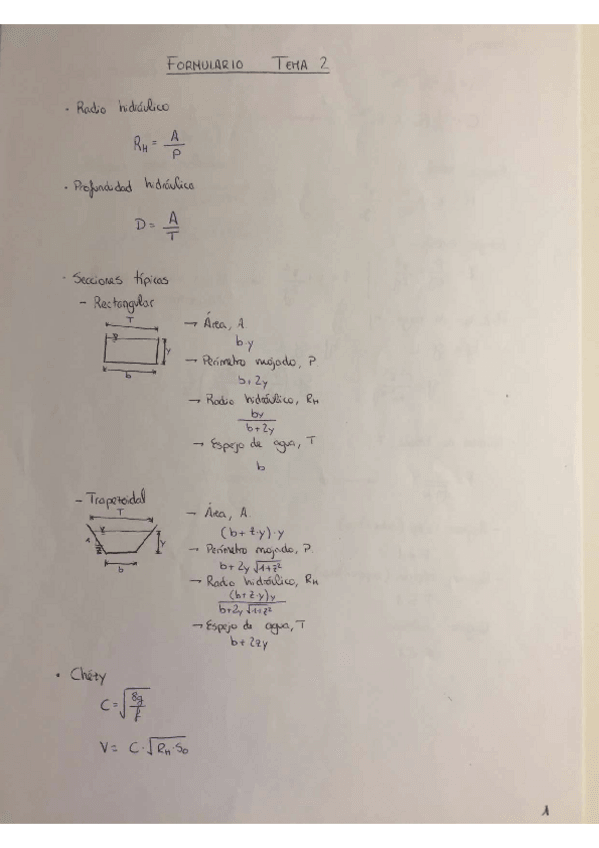 FORMULARIO TEMA 2
· Radio hidráulico
R_H = A/P
· Profundidad hidráulica
D = A/T
· Secciones típicas
- Rectangular
T
y
b
→ Área, A.
b·y
→ Perímetro mojado, P.
b+2y
→ Radio hidráulico, R_H
by/(b+2y)
→ Espejo de agua, T
b
- Trapezoidal
T
1
z
y
b
→ Área, A.
(b+z·y)·y
→ Perímetro mojado, P.
b+2y√(1+z²)
→ Radio hidráulico, R_H
(b+z·y)y/(b+2y√(1+z²))
→ Espejo de agua, T
b+2zy
· Chézy
C=√(8g/f)
V= C·√(R_H·S_0)
1